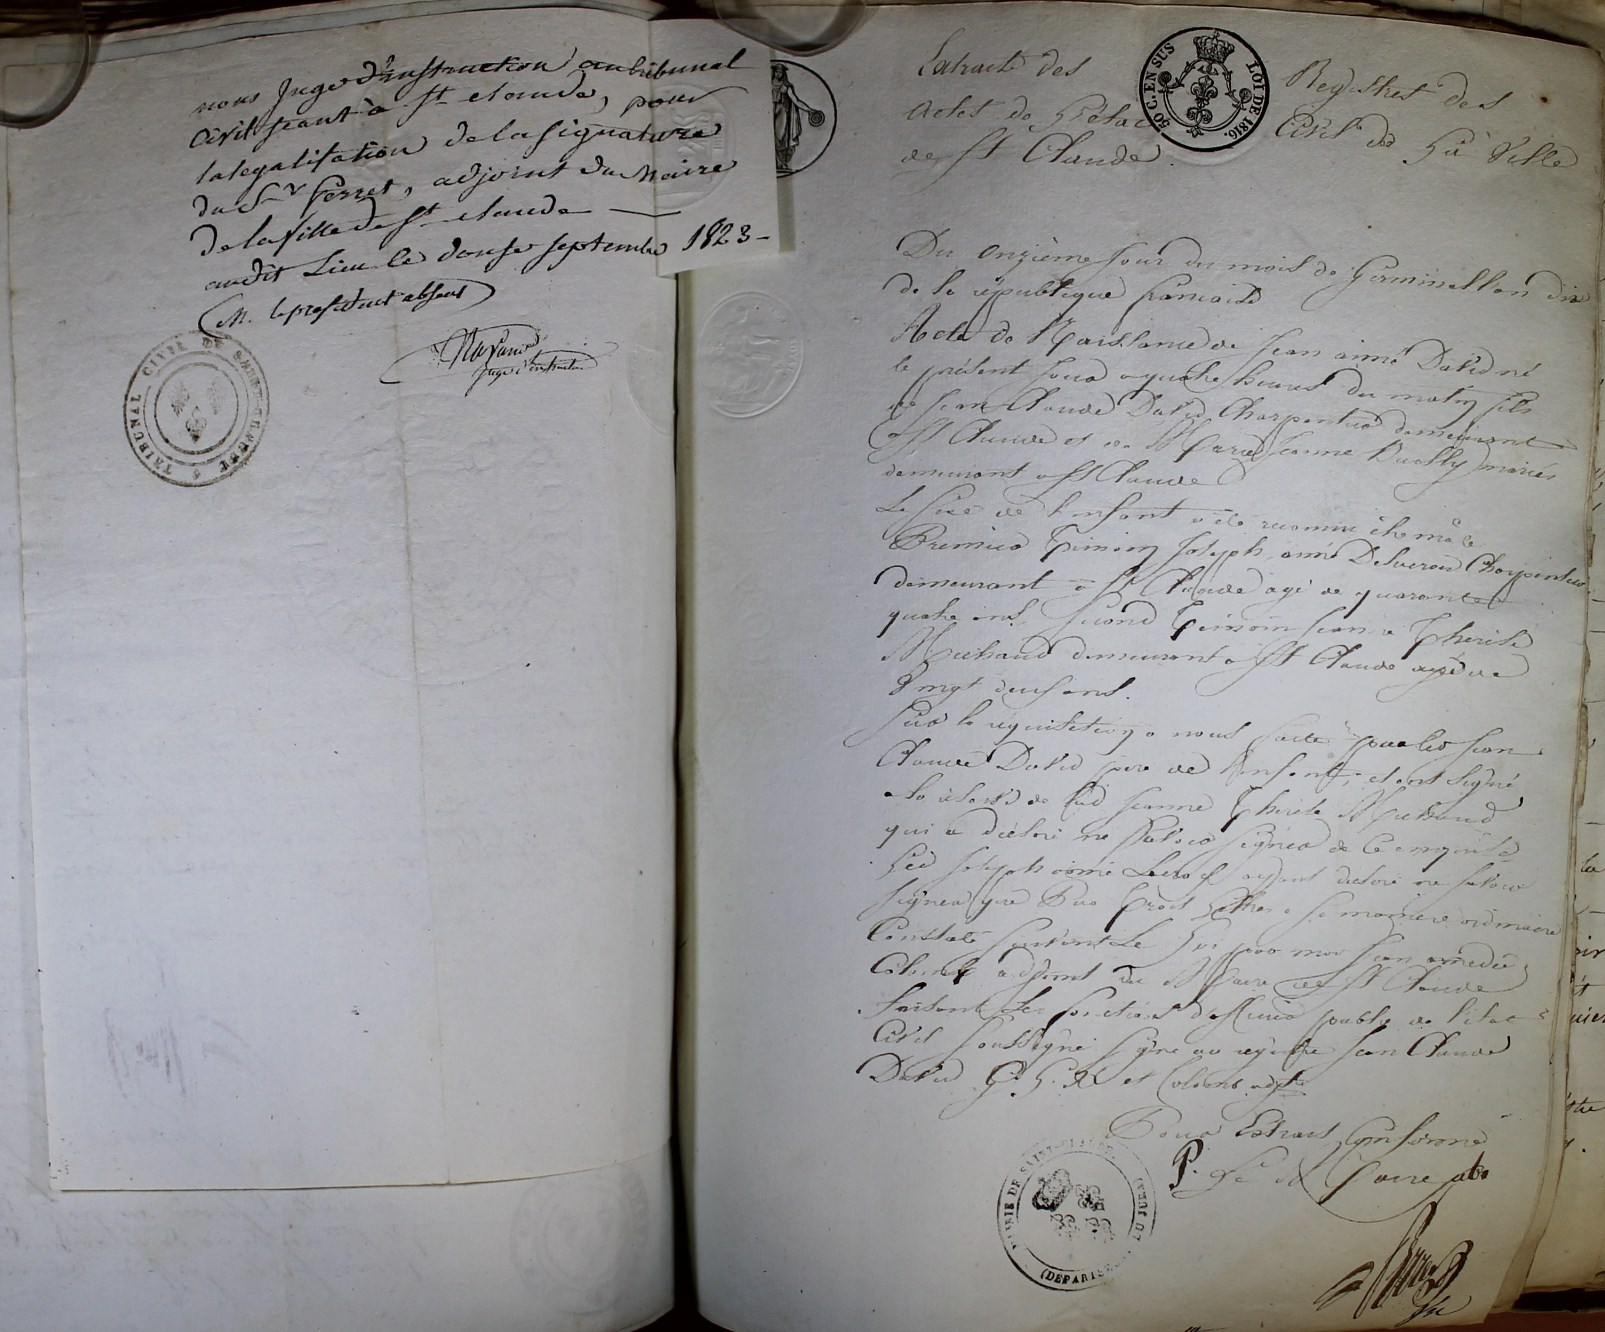 nous Juge d'instruction au tribunal
Civil seant à St. claude, pour
la legalisation de la signature
du Sr. Perret, adjoint du Maire
de la ville de St. claude —
audit Lieu le douse septembre 1823 –
M. le président absent
juge d'instruction
TRIBUNAL CIVIL DE SAINT-CLAUDE
Extrait des Registres des
actes de l'etat Civil de la Ville
de St Claude.
50 C. EN SUS LOI DE 1816.
Du onzième jour du mois de Germinal l'an dix
de la république française
Acte de Naissance de Jean aimé David né
le présent jour a quatre heures du matin fils
de Jean Claude David Charpentier demeurant
a St Claude et de Marie Jeanne mariés
demeurant a St Claude
Le Sexe de l'enfant a été reconnu être male
Premier Temoin Joseph aimé Charpentier
demeurant a St Claude agé de quarante
quatre ans Second Temoin Jeanne Therese
Michaud demeurant a St Claude agée de
Vingt deux ans.
Sur la requisition a nous faite par led Jean
Claude David pere de l'enfant, et ont signé
a la reserve de lad Jeanne Therese Michaud
qui a declaré ne savoir signer de ce enquise
Led Joseph aimé ayant declaré ne savoir
signer que Par trois lettres a sa maniere ordinaire
Constaté suivant la Loi par moi Jean amedée
Colomb adjoint du Maire de St Claude
faisant les fonctions d'officier public de l'état
Civil soussigné signé au registre Jean Claude
David et Colomb adjt
Pour Extrait Conforme
P. le Maire abs
MAIRIE DE SAINT-CLAUDE.
(DEPARTEMENT DU JURA)